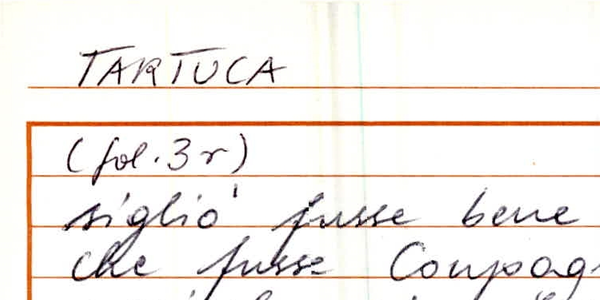 TARTUCA
(fol. 3 r)
siglio' fusse bene
che fusse Compag